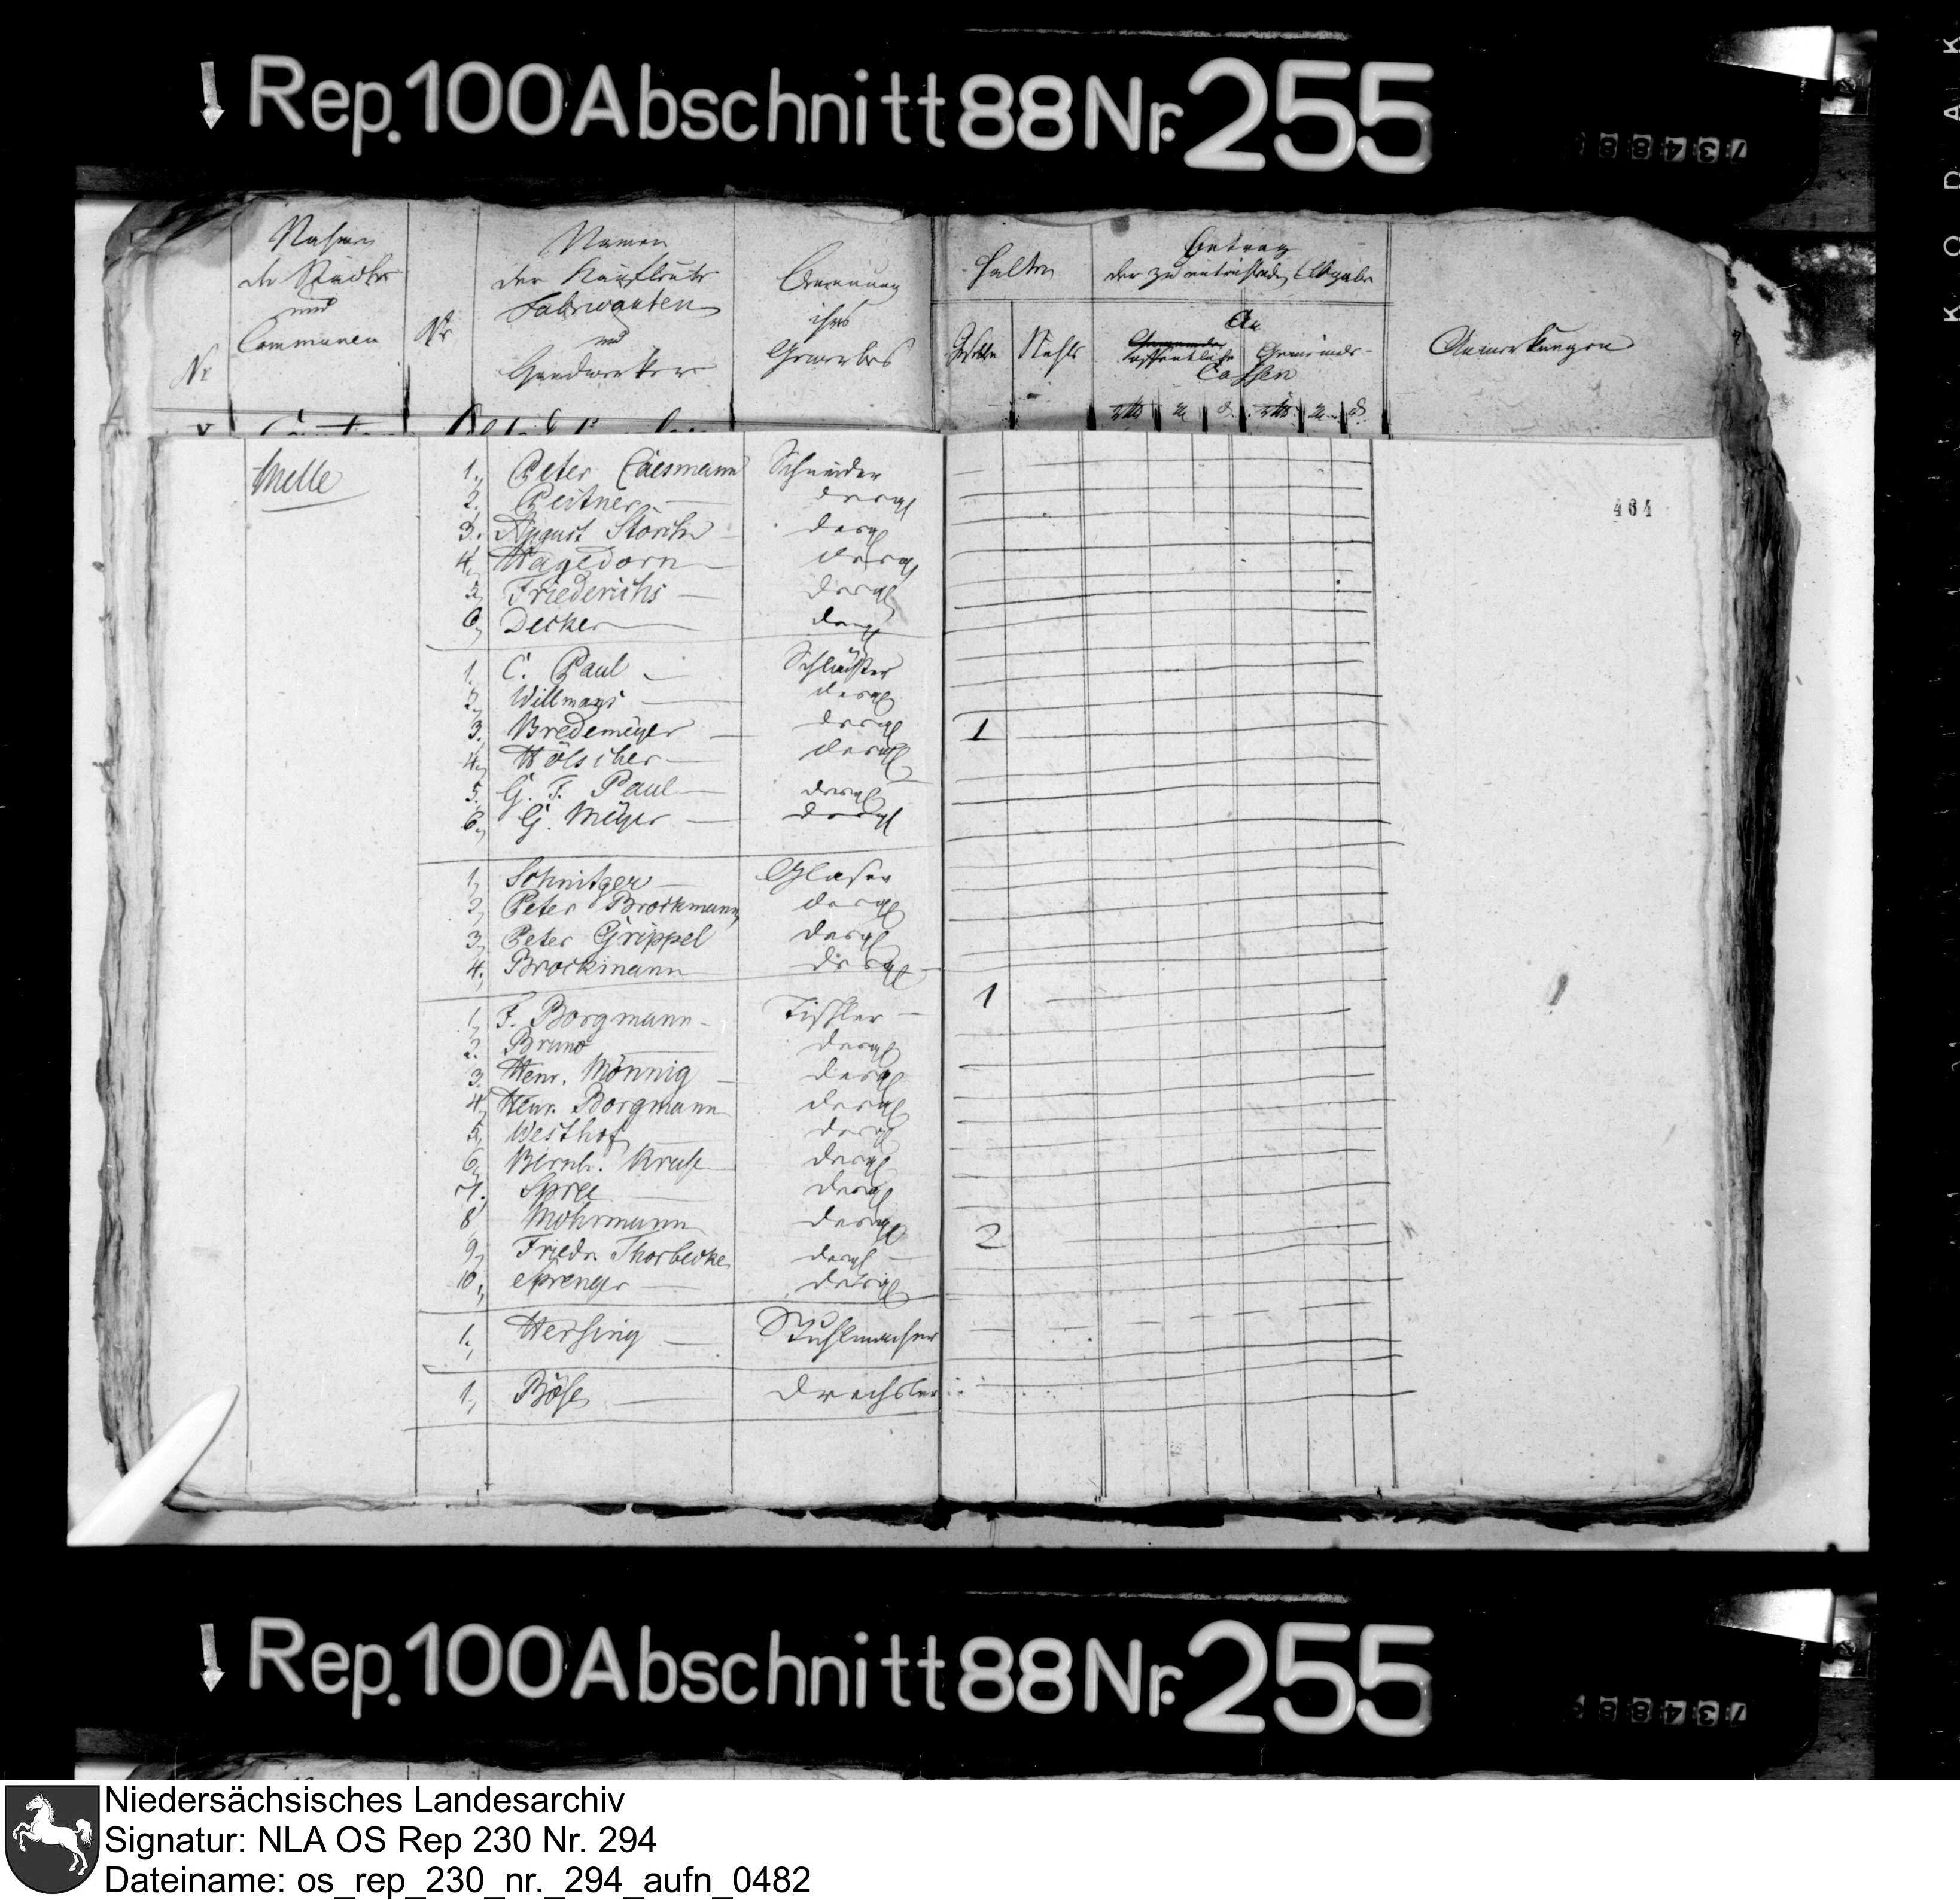 Rep. 100 Abschnitt 88 Nr. 255
73488
Nr
Nahmen
der Städte
und
Communen
Nr
Namen
der Kaufleute
Fabricanten
und
Handwerker
Benennung
ihres
Gewerbes
halten
Gesellen
Betrag
der zu entrichtenden Abgabe
An
öffentliche Gemeinde-
Cassen
Anmerkungen
464
Melle
1. Peter Caesmann Schneider
2. Peitner dergl
3. August Storch dergl
4. Hagedorn dergl
5. Friederichs dergl
6. Decker dergl
1. C. Paul Schlächter
2. Willmans dergl
3. Bredemeyer dergl 1
4. Hölscher dergl
5. G. F. Paul dergl
6. G. Meyer dergl
1. Schnitger Glaser
2. Peter Brockmann dergl
3. Peter Grippel dergl
4. Brockmann dergl
1. F. Borgmann Tischler 1
2. Bruno dergl
3. Henr. Mönnig dergl
4. Henr. Borgmann dergl
5. Westhof dergl
6. Bernh. Kruse dergl
7. Spree dergl
8 Mohrmann dergl
9. Friedr. Thorbecke dergl 2
10. Sprenger dergl
1. Hersing Stuhlmacher
1. Böse Drechsler
Rep. 100 Abschnitt 88 Nr. 255
73488
KODAK
Niedersächsisches Landesarchiv
Signatur: NLA OS Rep 230 Nr. 294
Dateiname: os_rep_230_nr._294_aufn_0482